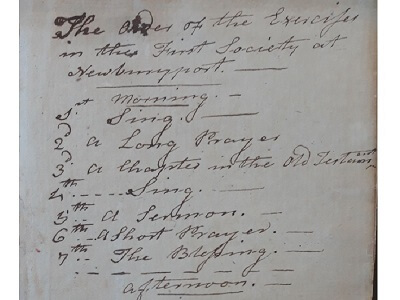 The Order of the Exercises
in the First Society at
Newburyport. —
Morning. —
1st Sing. —
2d A Long Prayer
3d A Chapter in the Old Testament
4th ---- Sing. —
5th A Sermon. —
6th -- A Short Prayer. —
7th -- The Blessing. —
Afternoon. —